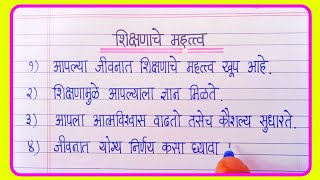 शिक्षणाचे महत्त्व
१) आपल्या जीवनात शिक्षणाचे महत्त्व खूप आहे.
२) शिक्षणामुळे आपल्याला ज्ञान मिळते.
३) आपला आत्मविश्वास वाढतो तसेच कौशल्य सुधारते.
४) जीवनात योग्य निर्णय कसा घ्यावा